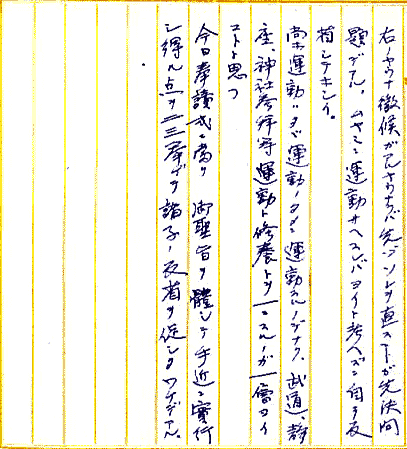 右ノヤウナ徴候ガアルナラバ先ヅソレヲ直スコトガ先決問
題デアル。ムヤミニ運動サヘスレバヨイト考ヘズニ自ラ反
省シテホシイ。
尚ホ運動ハタダ運動ノタメニ運動スルノデナク、武道、静
座、神社参拝等運動ト修養トヲ一ニスルノガ一番ヨイ
コトト思フ
今日奉読式ニ当リ 御聖旨ヲ体シテ手近ニ実行
シ得ル点ヲ二三挙ゲテ諸子ノ反省ヲ促シタワケデアル。